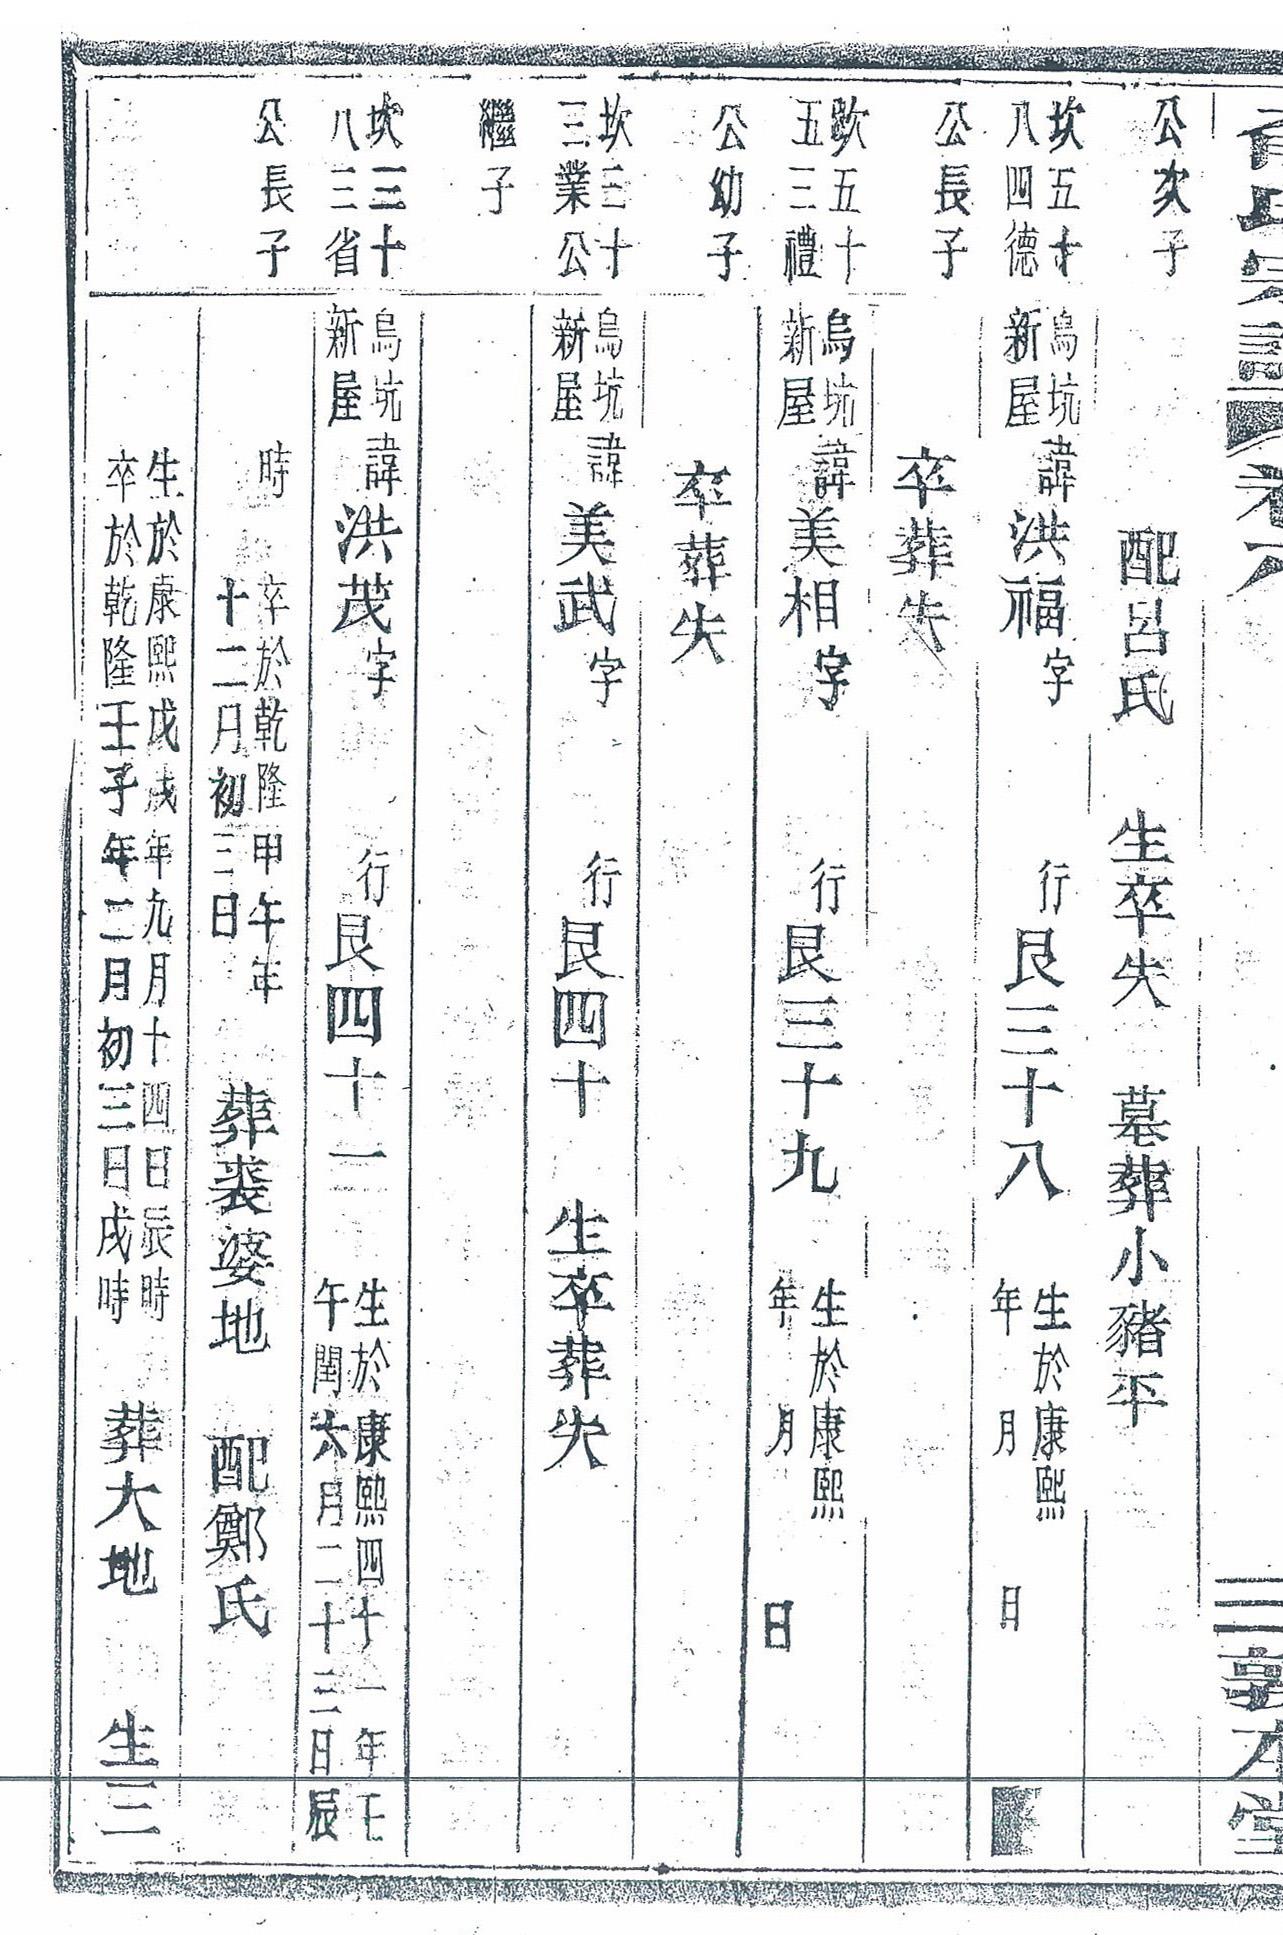 氏
卷六
三 敦本堂
公次子
配呂氏 生卒失 墓葬小豬平
坎五十
八四德
烏坑
新屋
諱洪福字 行艮三十八
生於康熙
年 月 日
公長子
卒葬失
坎五十
五三禮
烏坑
新屋
諱美相字 行艮三十九
生於康熙
年 月 日
公幼子
卒葬失
坎三十
三業公
烏坑
新屋
諱美武字 行艮四十 生卒葬失
繼子
坎三十
八三省
烏坑
新屋
諱洪茂字 行艮四十一
生於康熙四十一年壬
午閏六月二十三日辰
公長子
時 卒於乾隆甲午年
十二月初三日
葬裘婆地 配鄭氏
生於康熙戊戌年九月十四日辰時
卒於乾隆壬子年二月初三日戌時
葬大地 生三